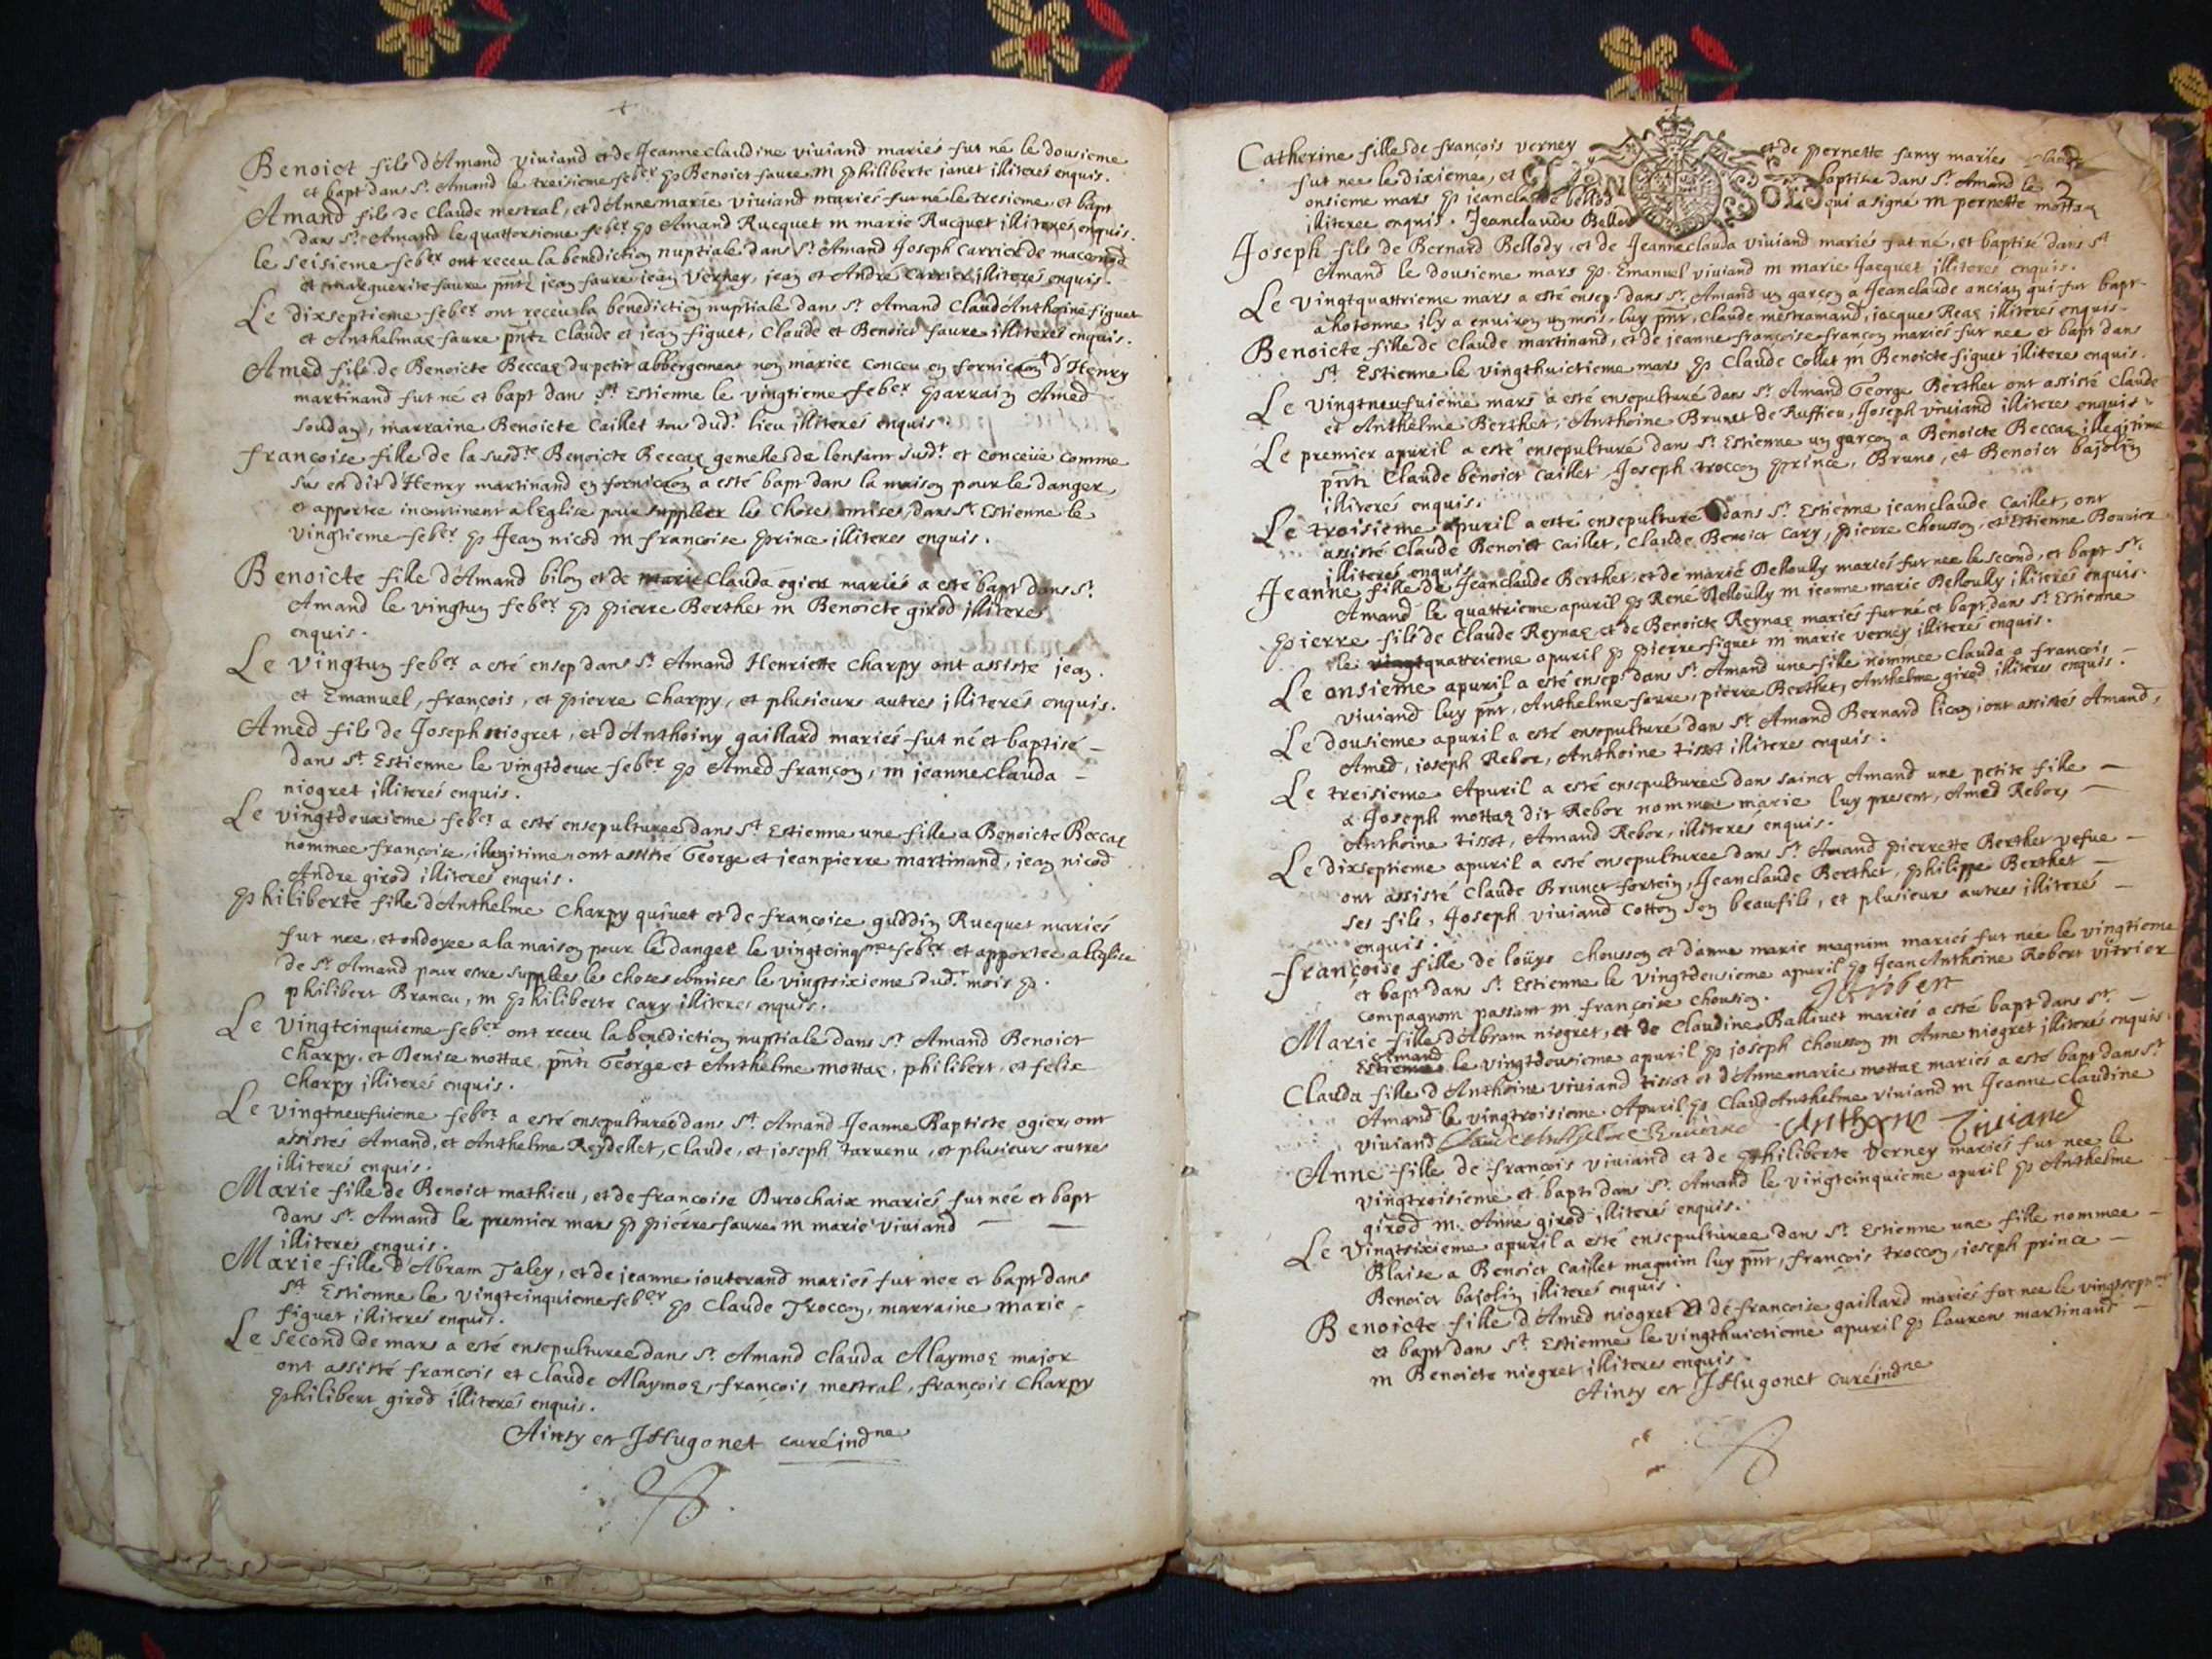 Benoict fils d'Amand viuiand et de Jeanne claudine viuiand mariés fut né le dousieme
et bapt dans St. Amand le treisieme feber p Benoict faure m philiberte janet illiteres enquis.
Amand fils de Claude mestral, et d'Anne marie viuiand mariés fut né le tresieme et bapt
dans St. Amand le quattorsieme feber p Amand Rucquet m marie Rucquet illiterés enquis.
le seisieme feber ont receu la benediction nuptiale dans St. Amand Joseph Carrier de
et marguerite faure pnts jean faure jean Verney, jean et André Carrier illiterés enquis.
Le dixseptieme feber ont receu la benediction nuptiale dans St. Amand Claud'Anthoine figuet
et Anthelmaz faure pnts Claude et jean figuet, Claude et Benoict faure illiterés enquis.
Amed fils de Benoicte Beccaz du petit abbergement non mariee conceu en fornicaõn d'Henry
martinand fut né et bapt dans St Estienne le vingtieme feber parrain Amed
Soudan, marraine Benoicte Caillet tous dudt lieu illiterés enquis.
françoise fille de la susdte Benoicte Beccaz gemelle de lenfant susdt et conceüe comme
sus en dit d'Henry martinand en fornicaõn a esté bapt dans la maison pour le danger,
et apportee incontinent a lEglise pour suppleer les choses omises dans St Estienne le
vingtieme feber p Jean nicod m françoise prince illiteres enquis.
Benoicte fille d'Amand bilon et de Clauda ogier mariés a esté bapt dans St.
Amand le vingtun feber p pierre Berthet m Benoicte girod illiteres
enquis.
Le vingtun feber a esté ensep dans St Amand Henriette Charpy ont assisté jean.
et Emanuel, françois, et pierre Charpy, et plusieurs autres illiterés enquis.
Amed fils de Joseph niogret, et d'Anthoiny gaillard mariés fut né et baptisé –
dans St Estienne le vingtdeux feber p Amed françon, m jeanne clauda –
niogret illiterés enquis.
Le vingtdeuxieme feber a esté ensepulturee dans St Estienne une fille a Benoicte Beccaz
nommee françoise, illegitime, ont assisté George et jean pierre martinand, jean nicod
Andre girod illiterés enquis.
philiberte fille d'Anthelme Charpy quiuet et de françoise guddin Rucquet mariés
fut nee, et ondoyee a la maison pour le danger le vingtcinqme feber et apportee a lEglise
de St Amand pour estre supplees les choses obmises le vingtsixieme dudt mois p.
philibert Brancu, m philiberte Cary illiteres enquis.
Le vingtcinquieme feber ont receu la benediction nuptiale dans St Amand Benoict
Charpy et Denise mottaz, pnts George et Anthelme mottaz, philibert et felix
Charpy illiterés enquis.
Le vingtneufuieme feber a esté ensepulturée dans St. Amand Jeanne Baptiste ogier, ont
assistés Amand, et Anthelme Reydellet, Claude, et joseph taruenu, et plusieurs autres
illiterés enquis.
Marie fille de Benoict mathieu, et de françoise Durochaix mariés fut née et bapt
dans St. Amand le premier mars p pierre faure m marie viuiand –
illiteres enquis.
Marie fille d'Abram Taley, et de jeanne iouterand mariés fut nee et bapt dans
St Estienne le vingtcinquieme feber p Claude Troccon, marraine marie –
figuet illiterés enquis.
Le second de mars a esté ensepulturee dans St. Amand Clauda Alaymoz major
ont assisté françois et Claude Alaymoz, françois mestral, françois Charpy
philibert girod illiterés enquis.
Ainsy est JHugonet curé indne
Catherine fille de françois verney et de pernette famy mariés
fut nee le dixieme, et baptisee dans St Amand le
onsieme mars p jeanclaude bellod qui a signé m pernette mottaz
illiteree enquis. Jeanclaude Bellod
SOLS
Joseph fils de Bernard Bellody, et de Jeanneclauda viuiand mariés fut né, et baptisé dans St
Amand le dousieme mars p Emanuel viuiand m marie Jacquet illiterés enquis.
Le vingtquattrieme mars a esté ensep. dans St Amand un garçon a Jeanclaude ancian qui fut bapt
a hotonne il y a environ un mois, luy pnt, Claude mestramand, jacques Reaz illiterés enquis.
Benoicte fille de Claude martinand, et de jeanne françoise françon mariés fut nee et bapt dans
St Estienne le vingthuictieme mars p Claude Collet m Benoicte figuet illiteres enquis.
Le vingtneufuieme mars a esté ensepulturé dans St Amand George Berthet ont assisté Claude
et Anthelme Berthet, Anthoine Brunet de Ruffieu, Joseph viuiand illiteres enquis.
Le premier apuril a esté ensepulturé dans St. Estienne un garçon a Benoicte Beccaz illegitime
pnts Claude benoict Caillet, Joseph troccon prince, Bruno, et Benoict bajolin
illiterés enquis.
Le troisieme apuril a esté ensepulturé dans St. Estienne jeanclaude Caillet, ont
assisté Claude Benoict Caillet, Claude Benoict Cary, pierre Chousson, et Estienne Bouuier
illiterés enquis.
Jeanne fille de Jeanclaude Berthet, et de marie Belloully mariés fut nee le second, et bapt St.
Amand le quattrieme apuril p René Belloully m jeanne marie Belloully illiterés enquis.
pierre fils de Claude Reynaz et de Benoicte Reynaz mariés fut né et bapt dans St Estienne
le quattrieme apuril p pierre figuet m marie verney illiterés enquis.
Le onsieme apuril a esté ensep. dans St. Amand une fille nommee Clauda a françois –
viuiand luy pnt, Anthelme faure, pierre Berthet, Anthelme girod illiteres enquis.
Le dousieme apuril a esté ensepulturé dans St Amand Bernard lican, ont assistés Amand,
Amed, ioseph Rebor, Anthoine tissot illiteres enquis.
Le treisieme Apuril a esté ensepulturee dans sainct Amand une petite fille –
a Joseph mottaz dit Rebor nommee marie luy present, Amed Rebor, –
Anthoine tissot, Amand Rebor, illiterés enquis.
Le dixseptieme apuril a esté ensepulturee dans St. Amand pierrette Berthet vefue –
ont assisté Claude Brunet fortein, Jeanclaude Berthet, philippe Berthet –
ses fils, Joseph viuiand Cotton son beaufils, et plusieurs autres illiterés –
enquis.
françoise fille de loüys Chousson et danne marie magnim mariés fut nee le vingtieme
et bapt dans St. Estienne le vingtdeusieme apuril p JeanAnthoine Robert vitrier
Compagnom passant m françoise Chousson.
Marie fille d'Abram niogret, et de Claudine Balliuet mariés a esté bapt dans St. –
Amand
Estienne le vingtdeusieme apuril p joseph Chousson m Anne niogret illiterés enquis.
Clauda fille d'Anthoine viuiand tissot et d'Anne marie mottaz mariés a esté bapt dans St
Amand le vingtroisieme Apuril p Claud'Anthelme viuiand m Jeanne Claudine
viuiand Anthoyne Viuiand
Anne fille de françois viuiand et de philiberte Verney mariés fut nee le
vingtroisieme et bapt dans St. Amand le vingtcinquieme apuril p Anthelme
girod m. Anne girod illiterés enquis.
Le vingtsixieme apuril a esté ensepulturee dans St Estienne une fille nommee –
Blaise a Benoict Caillet magnim luy pnt, françois troccon, ioseph prince –
Benoict bajolin illiterés enquis.
Benoicte fille d'Amed niogret et de françoise gaillard mariés fut nee le vingtseptme
et bapt dans St Estienne le vingthuictieme apuril p Laurens martinand –
m Benoicte niogret illiteres enquis.
Ainsy est JHugonet curé indne